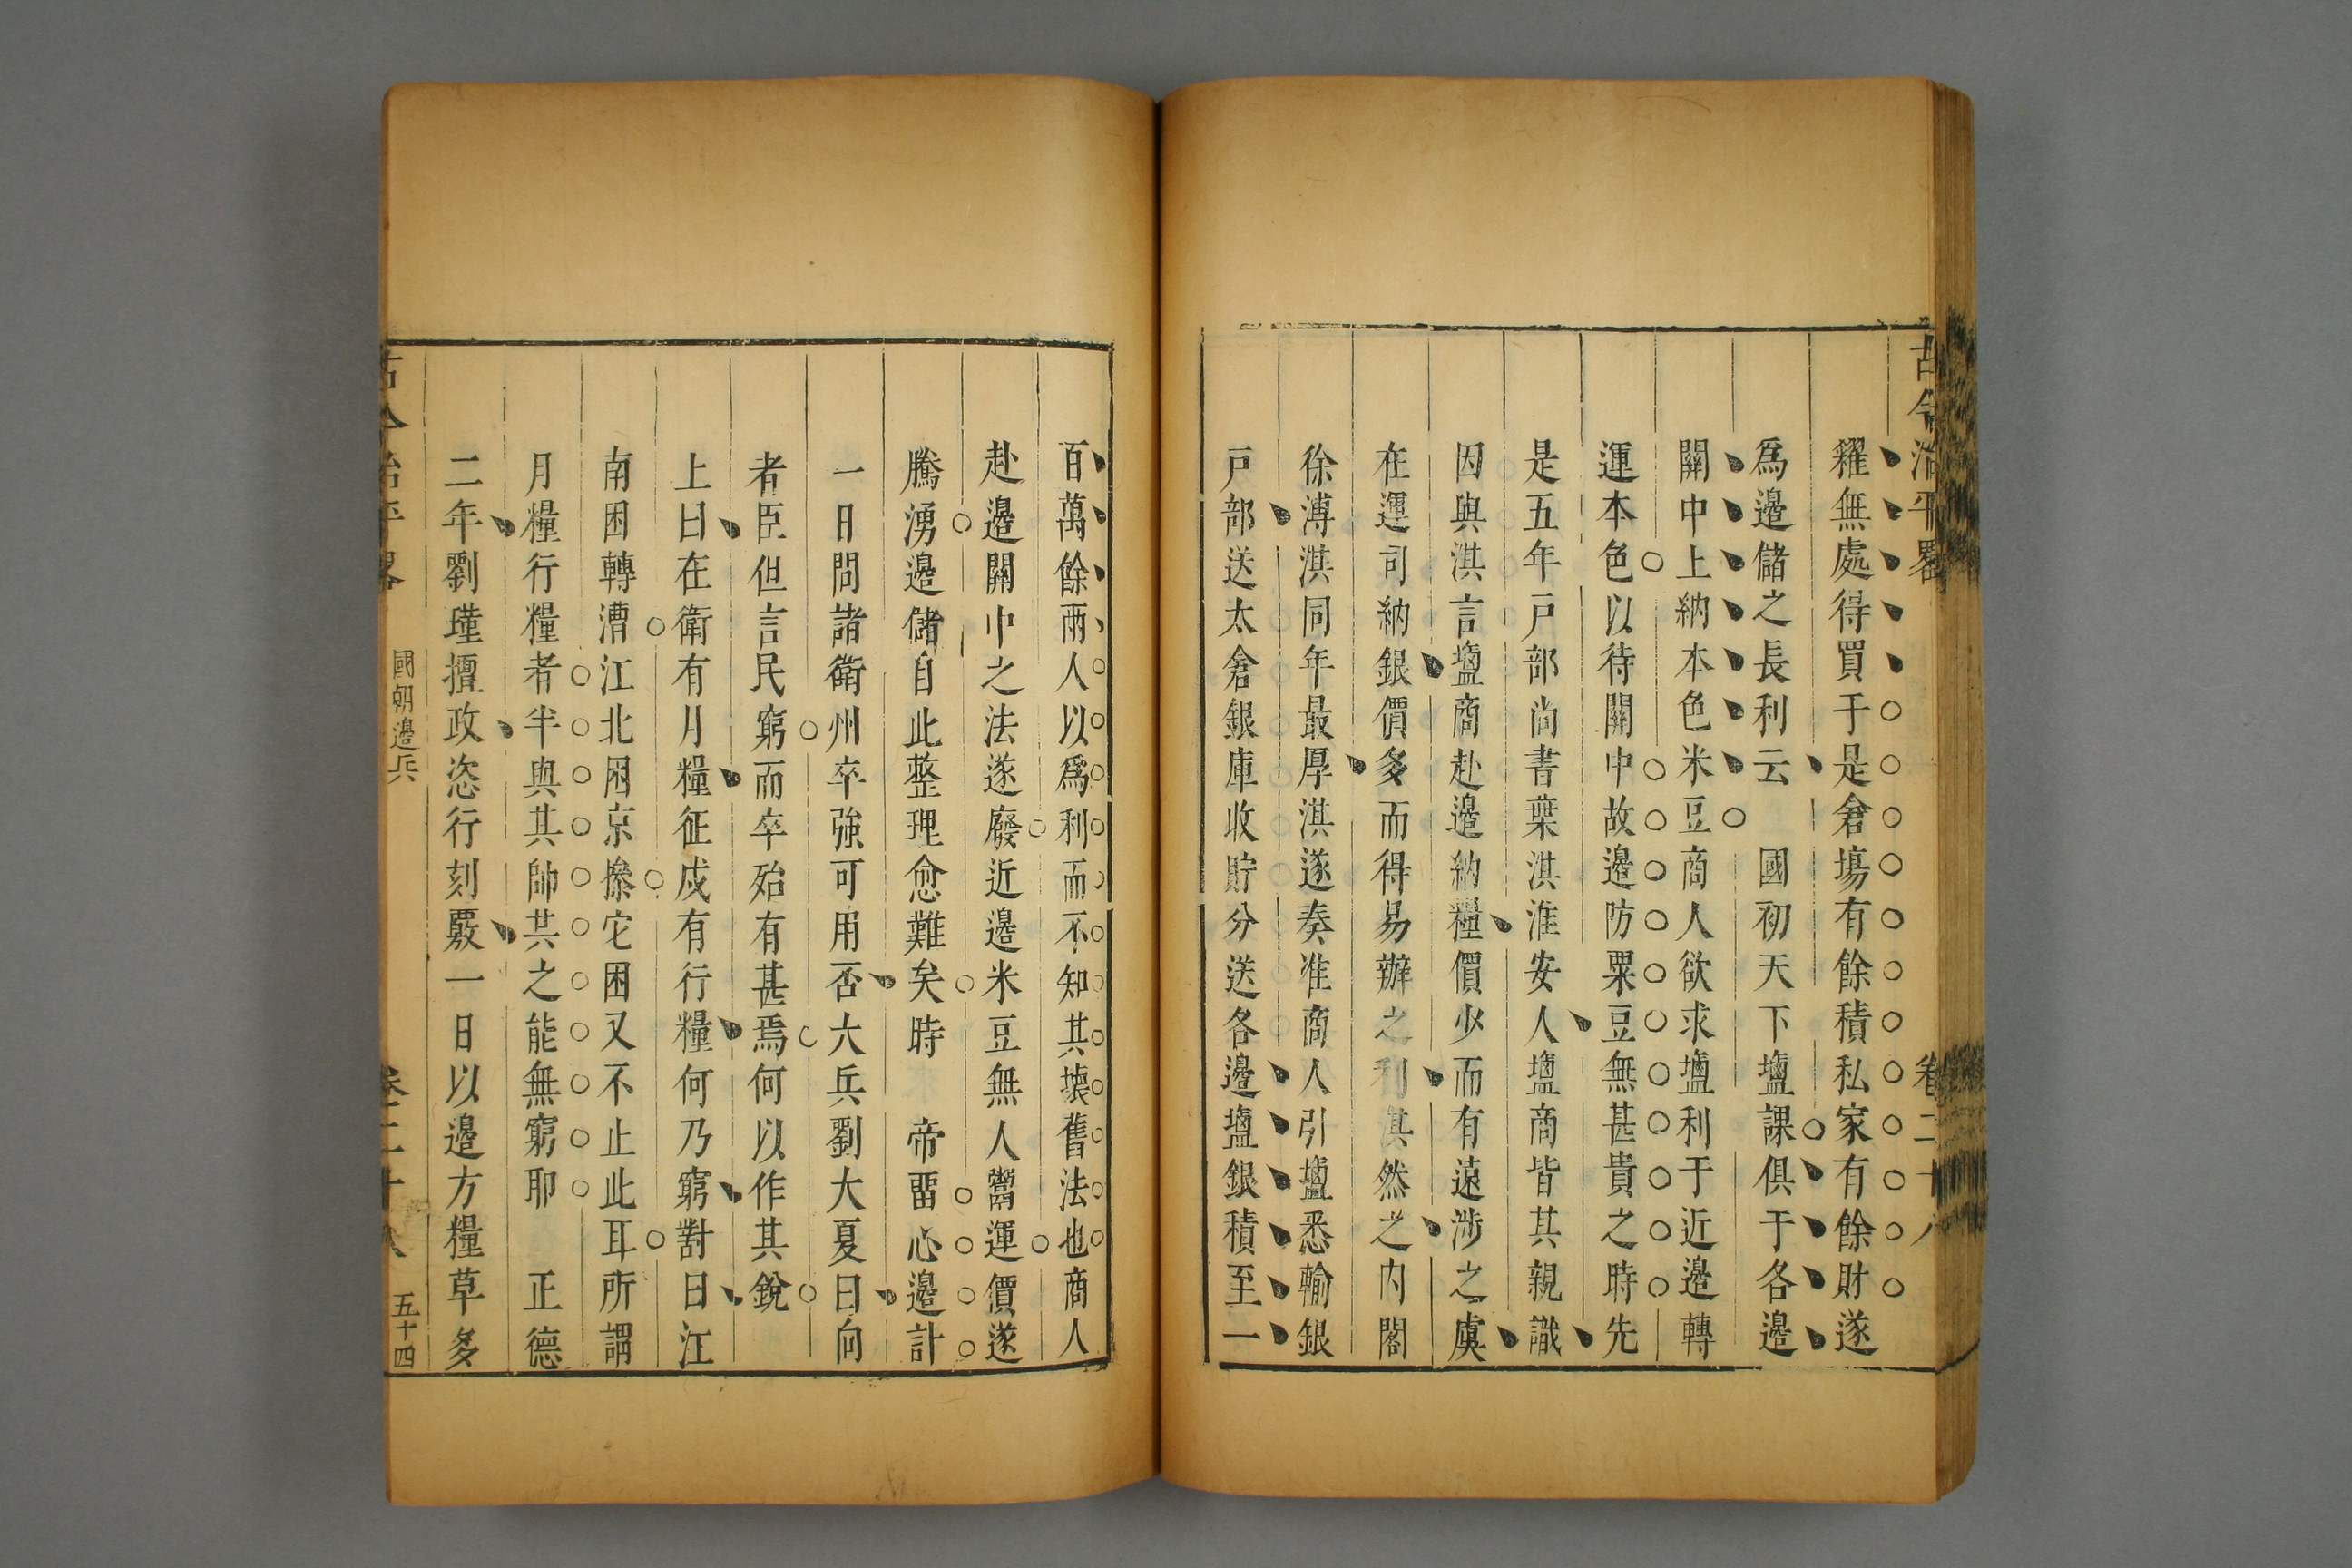 古今治平畧 卷二十八
糴無處得買于是倉塲有餘積私家有餘財遂
爲邉儲之長利云 國初天下塩課俱于各邉
開中上納本色米豆商人欲求塩利于近邉轉
運本色以待開中故邉防粟豆無甚貴之時先
是五年戸部尚書葉淇淮安人塩商皆其親識
因與淇言塩商赴邉納糧價少而有遠涉之虞
在運司納銀價多而得易辦之利淇然之内閣
徐溥淇同年最厚淇遂奏准商人引塩悉輸銀
戸部送太倉銀庫收貯分送各邉塩銀積至一
百萬餘兩人以爲利而不知其壊舊法也商人
赴邉開中之法遂廢近邉米豆無人鬻運價遂
騰湧邉儲自此整理愈難矣時 帝畱心邉計
一日問諸衛州卒強可用否大兵劉大夏曰向
者臣但言民窮而卒殆有甚焉何以作其銳
上曰在衛有月糧征戍有行糧何乃窮對曰江
南困轉漕江北困京操它困又不止此耳所謂
月糧行糧者半與其帥共之能無窮耶 正德
二年劉瑾擅政恣行刻覈一日以邉方糧草多
古今治平畧 國朝邉兵 卷二十八 五十四